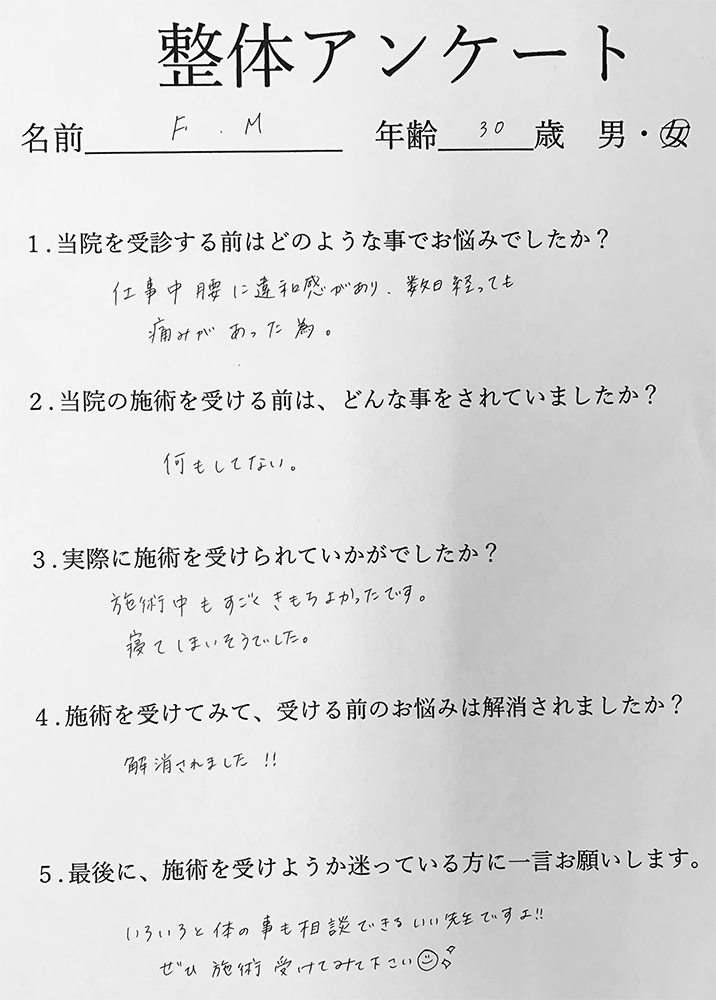 整体アンケート
名前 F.M 年齢 30 歳 男・女
1.当院を受診する前はどのような事でお悩みでしたか？
仕事中腰に違和感があり、数日経っても
痛みがあった為。
2.当院の施術を受ける前は、どんな事をされていましたか？
何もしてない。
3.実際に施術を受けられていかがでしたか？
施術中もすごくきもちよかったです。
寝てしまいそうでした。
4.施術を受けてみて、受ける前のお悩みは解消されましたか？
解消されました!!
5.最後に、施術を受けようか迷っている方に一言お願いします。
いろいろと体の事も相談できるいい先生ですよ!!
ぜひ施術受けてみて下さい